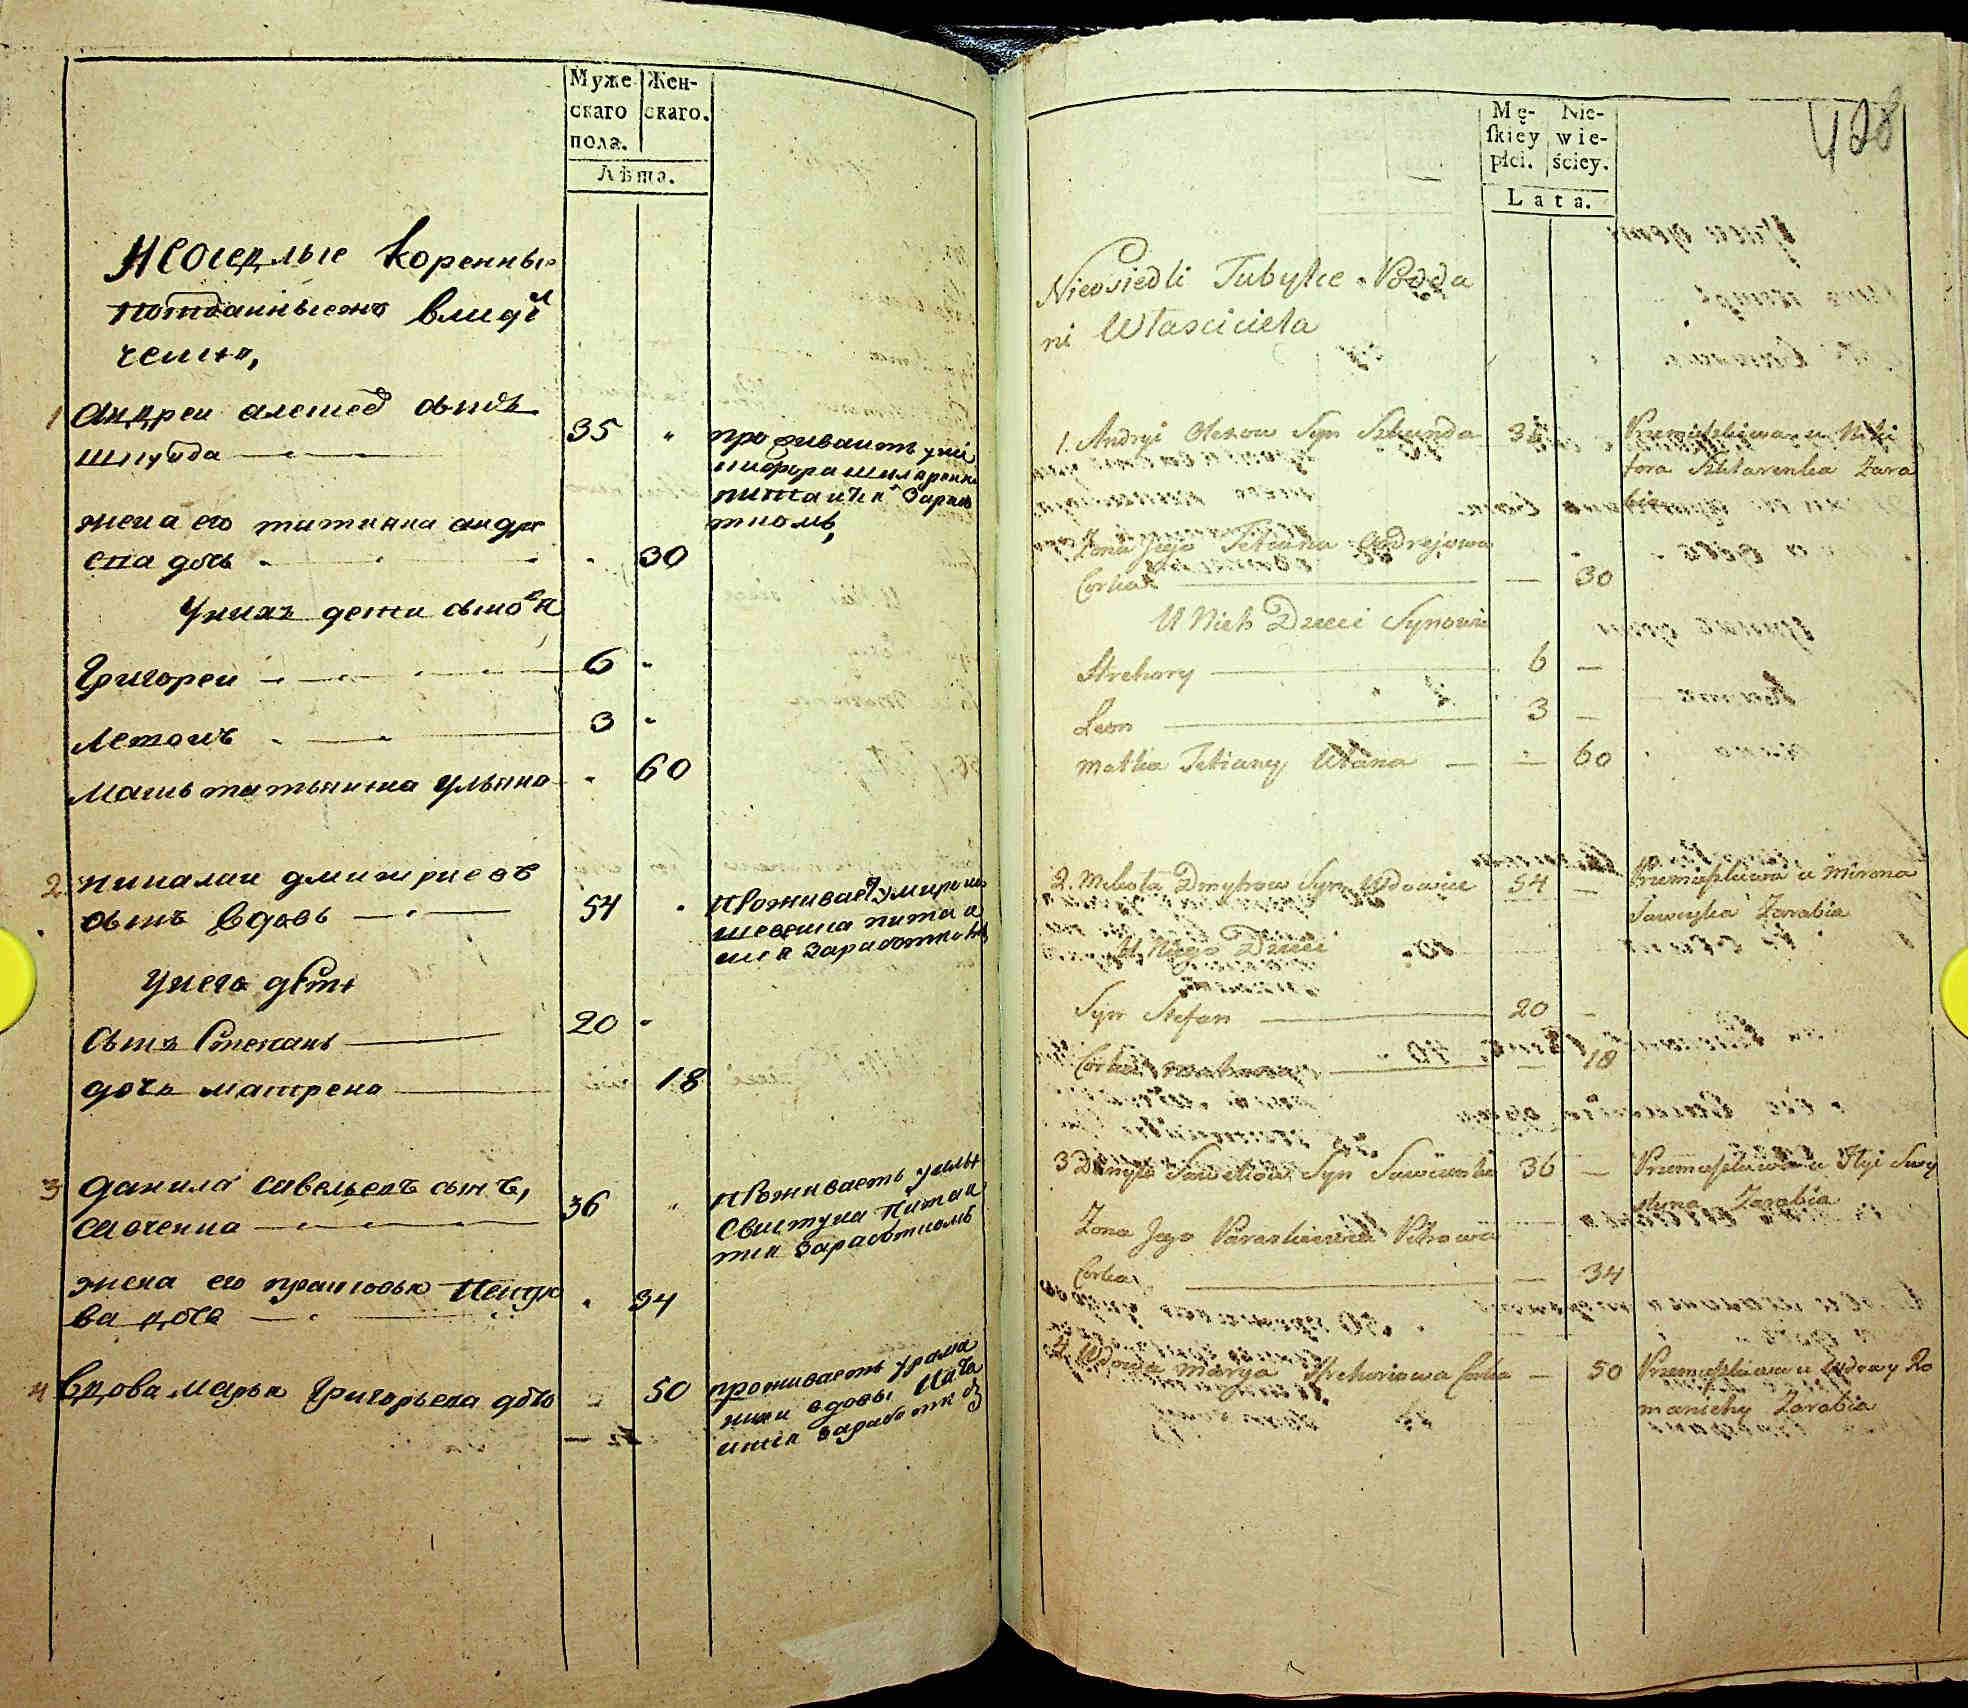 Муже
скаго
пола.
Жен-
скаго.
Лѣта.
Неоседлые коренные
чемъ,
1 Андреи алешеѵ сынъ
Шкунда
35 "
проживаитъ уни
жена его татияна андре
ева дочь
30
Унихъ дети сынов я
Григореи 6 "
Левонъ 3 "
Мать татьянина Ульяна 60
2 Миколаи дмитриевъ
сынъ вдовъ
54 "
Проживает у мирона
Унего дѣти
сынъ Степанъ 20 "
дочь матрена 18
3 данило савельевъ сынъ,
савченко
36 "
Проживаетъ уильи
Свистуна питаи
тся заработкомъ
жена его прасковья Петро
ва дочь
34
4 Вдова Марья Григорьева дочь 50
проживаетъ урома
нихи вдовы Пита
ится заработкō
428
Mę-
ſkiey
płci.
Nie-
wie-
ściey.
Lata.
Nieosiedli Tubylce Podda
ni Własciciela
1. Andryi Olexow Syn Szkunda 35
Przemiszkiwa u Niki
fora Szklarenka Zara
bia
Zona Jego Tetiana Andrejowa
Corka 30
U Nich Dzieci Synowie
Hrehory 6
Leon 3
matka Tetiany Ulana 60
2. Mikoła Dmytrow Syn Wdowiec 54
Przemieszkiwa u Mirona
Zarabia
U Niego Dzieci
Syn Stefan 20
Corka Matrona 18
3 Danyło Saweliow Syn Sawczenko 36
Przemieszkiwa u Ilyi Swy
stuna Zarabia
Zona Jego Paraskiewia Petrowa
Corka 34
4 Wdowa Marya Hrehoriowa Corka 50
Przemieszkiwa u Wdowy Ro
manichy Zarabia